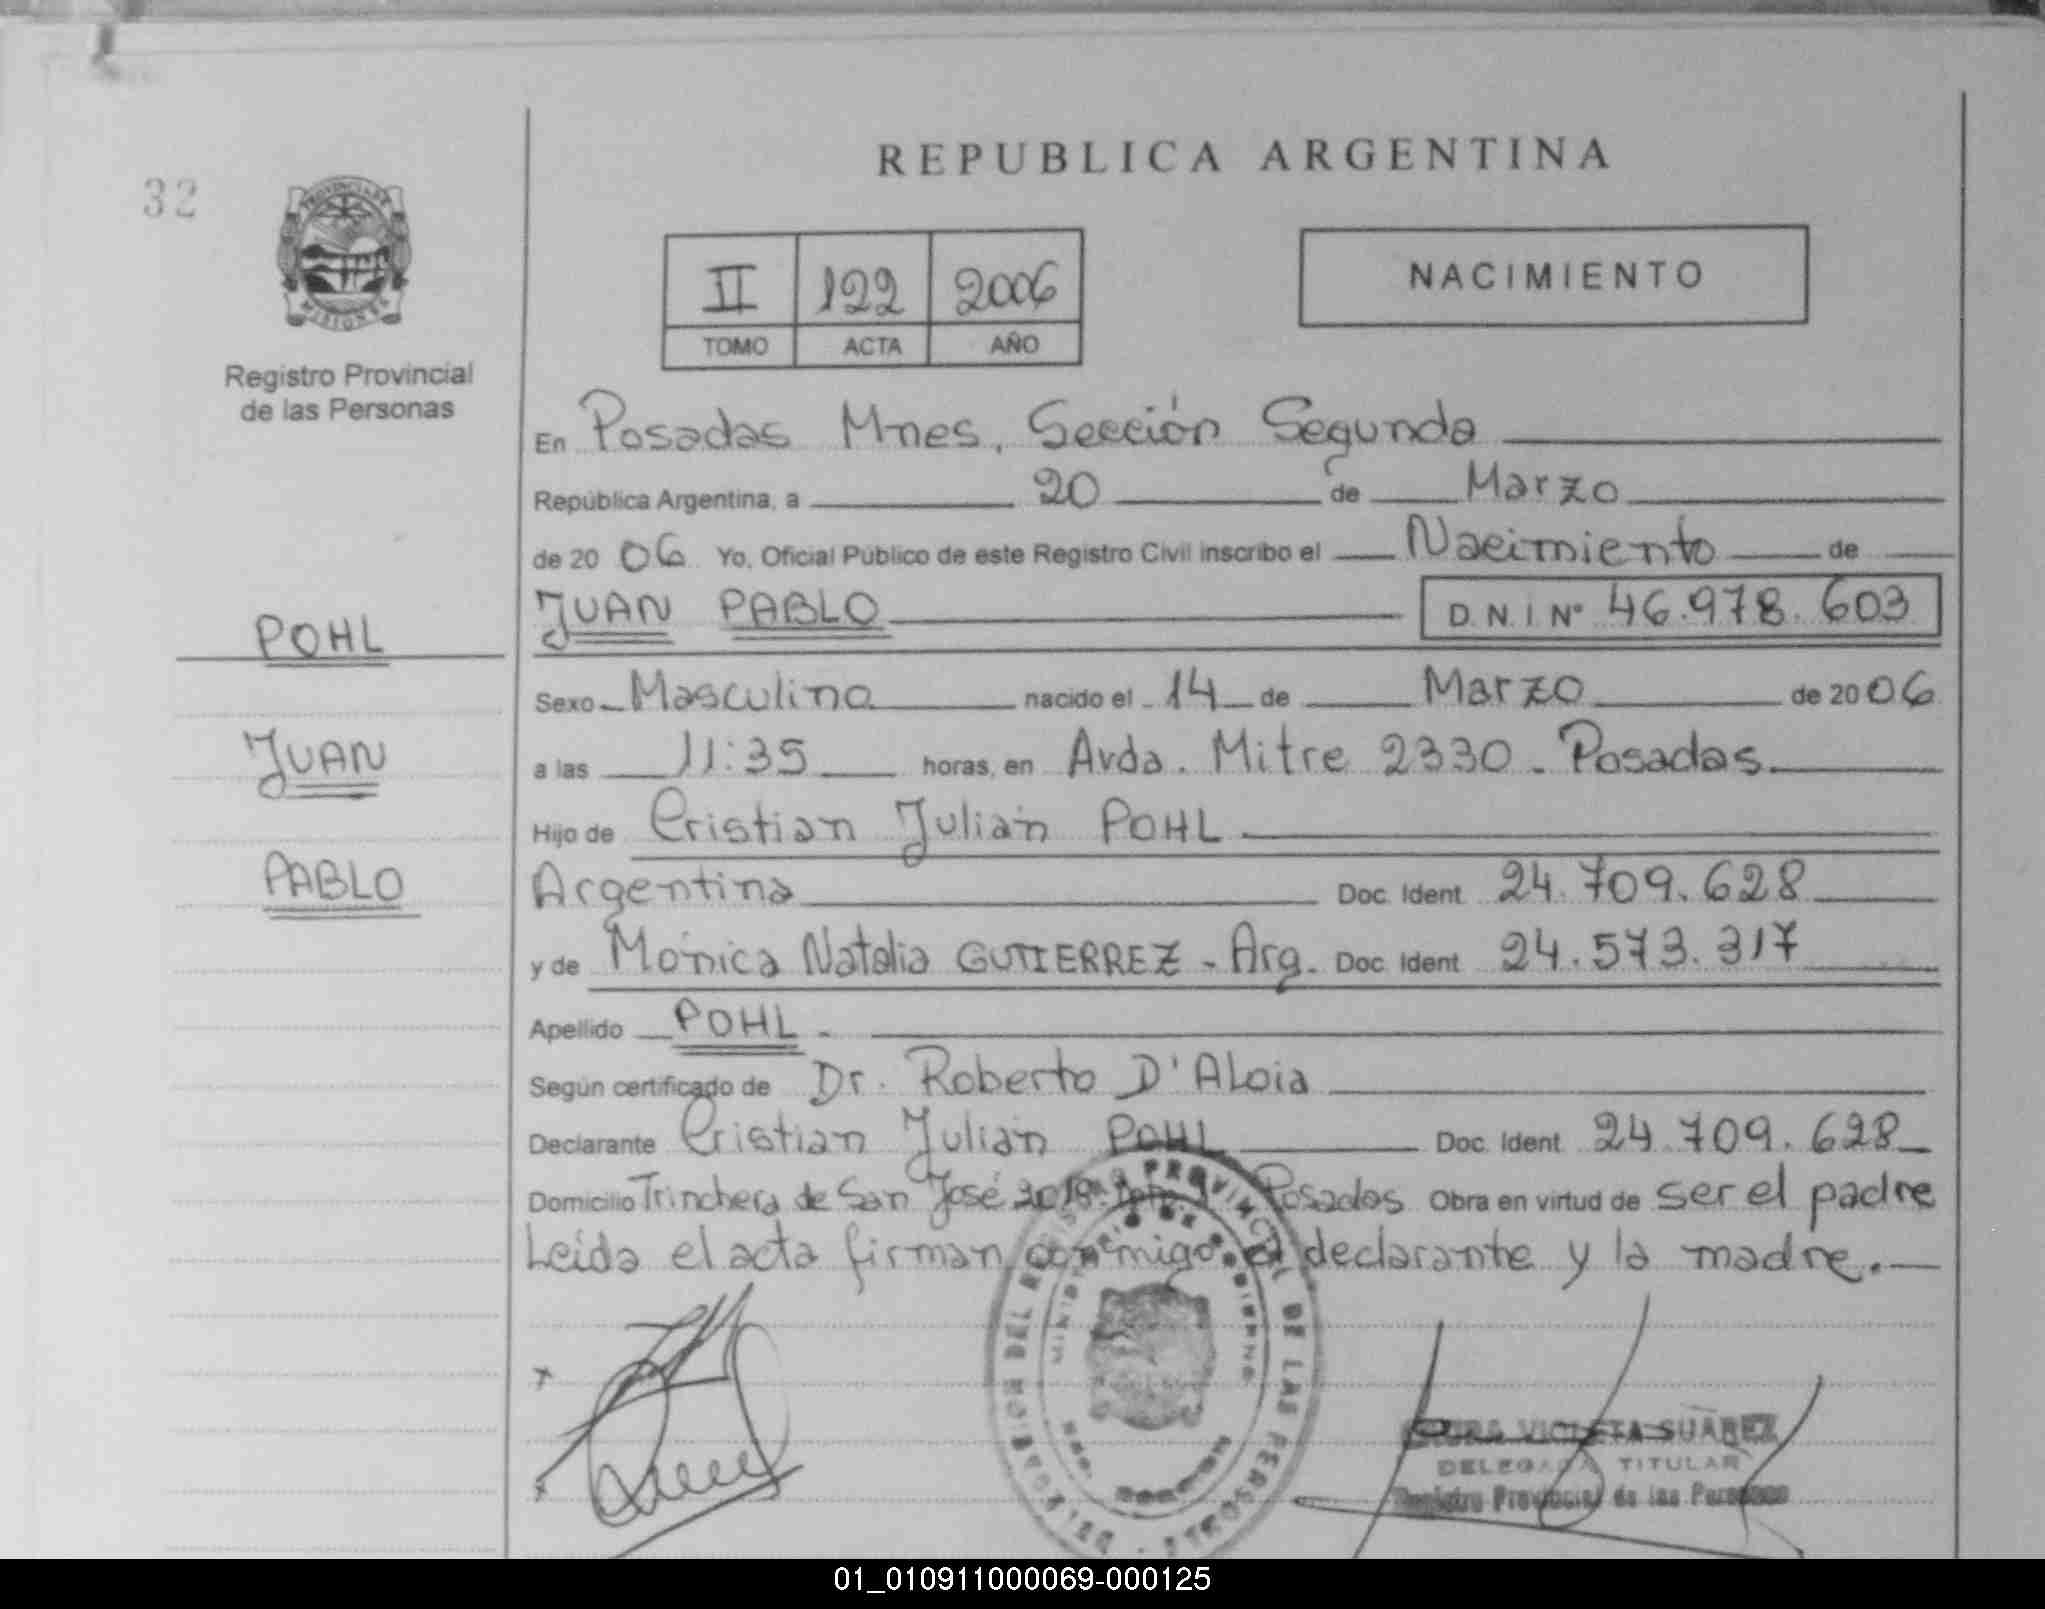 REPUBLICA ARGENTINA
32
PROVINCIA DE
MISIONES
Registro Provincial
de las Personas
II 122 2006
TOMO ACTA AÑO
NACIMIENTO
En Posadas Mnes, Sección Segunda
República Argentina, a 20 de Marzo
de 20 06 Yo, Oficial Público de este Registro Civil inscribo el Nacimiento de
JUAN PABLO D.N.I. Nº 46.978.603
POHL
JUAN
PABLO
Sexo Masculino nacido el 14 de Marzo de 20 06
a las 11:35 horas, en Avda. Mitre 2330 - Posadas
Hijo de Cristian Julián POHL
Argentina Doc. Ident 24.709.628
y de Mónica Natalia GUTIERREZ - Arg. Doc. Ident 24.573.317
Apellido POHL -
Según certificado de Dr. Roberto D'Aloia
Declarante Cristian Julián POHL Doc. Ident 24.709.628
Domicilio Trinchera de San José Posadas Obra en virtud de ser el padre
Leída el acta firman conmigo el declarante y la madre.
PROVINCIAL DE LAS PERSONAS
MINISTERIO DE GOBIERNO
VIOLETA SUAREZ
DELEGADA TITULAR
Registro Provincial de las Personas
01_010911000069-000125